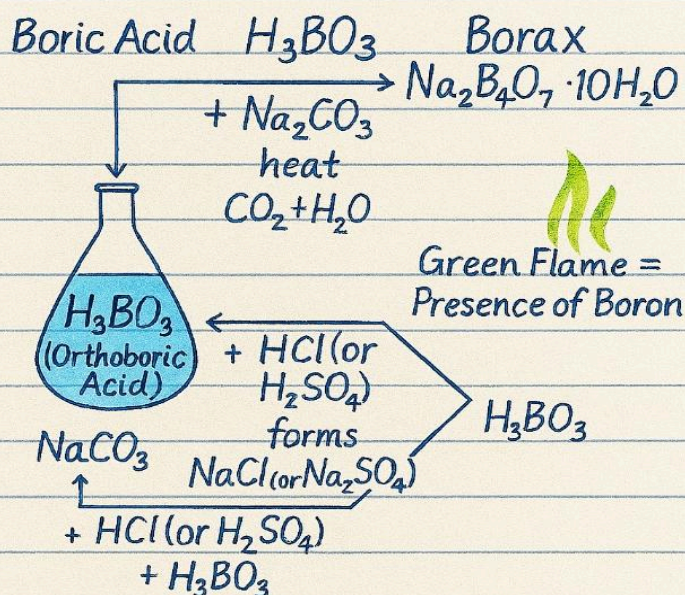 Boric Acid H₃BO₃ Borax
Na₂B₄O₇ ·10H₂O
+ Na₂CO₃
heat
CO₂+H₂O
Green Flame =
Presence of Boron
H₃BO₃
(Orthoboric
Acid)
+ HCl (or
H₂SO₄)
forms
NaCl (or Na₂SO₄)
H₃BO₃
NaCO₃
+ HCl (or H₂SO₄)
+ H₃BO₃